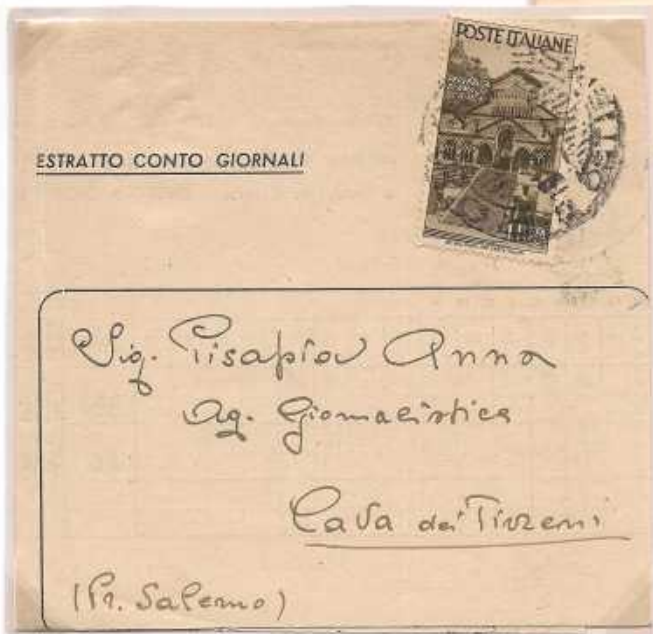 POSTE ITALIANE
ESTRATTO CONTO GIORNALI
Sig. Pisapia Anna
Ag. Giornalistica
Cava dei Tirreni
(Pr. Salerno)